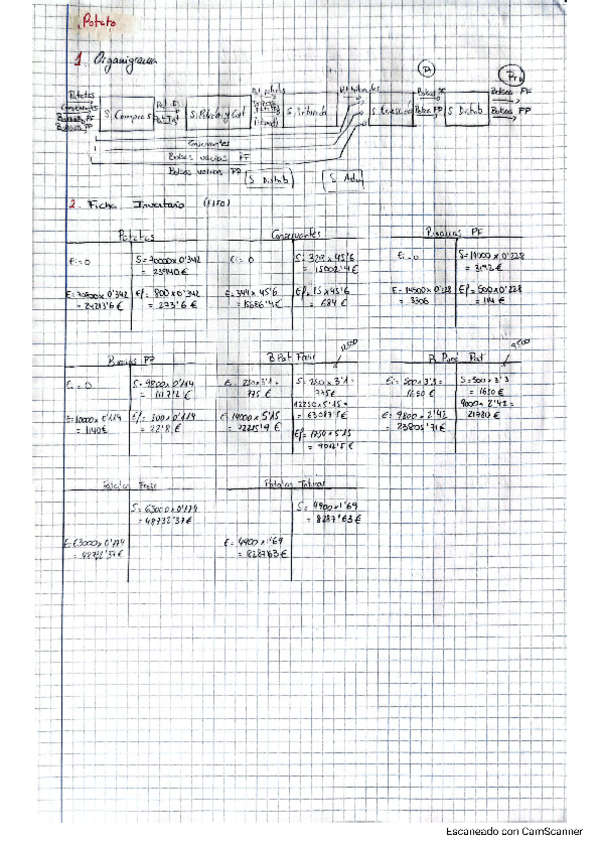 Potato
1. Organigrama
Patatas
Conservantes
Bolsas PF
Bolsas PP
S. Compras
S. Triturado
S. Envasado
S. Distrib
Bolsas PF
Bolsas PP
Conservantes
Bolsas vacias PF
Bolsas vacias PP
S Distrib
S Adm
2. Ficha Inventario (FIFO)
Patatas
Ei = 0
S = 70000 x 0'342
= 23940 €
E = 70800 x 0'342
= 24213'6 €
Ef = 800 x 0'342
= 273'6 €
Conservantes
Ei = 0
S = 329 x 45'6
= 15002'4 €
E = 344 x 45'6
= 15686'4 €
Ef = 15 x 45'6
= 684 €
PF
Ei = 0
S = 14000 x 0'228
= 3192 €
E = 14500 x 0'228
= 3306
Ef = 500 x 0'228
= 114 €
Bolsas PP
Ei = 0
S = 9800 x 0'114
= 1117'2 €
E = 10000 x 0'114
= 1140 €
Ef = 200 x 0'114
= 22'8 €
B Pat Freir
12500
Ei = 250 x 3'1 =
775 €
S = 250 x 3'1 =
775 €
12250 x 5'15 =
= 63087'5 €
E = 14000 x 5'15
Ef = 1750 x 5'15
= 9012'5 €
B Puré Pat
9500
Ei = 500 x 3'3 =
1650 €
S = 500 x 3'3
= 1650 €
9000 x 2'42 =
21780 €
E = 9800 x 2'43
= 23805'71 €
Patatas Freir
S = 63000 x 0'774
= 48732'37 €
E = 63000 x 0'774
= 48732'37 €
Patatas Triturar
S = 4900 x 1'69
= 8287'63 €
E = 4900 x 1'69
= 8287'63 €
Escaneado con CamScanner